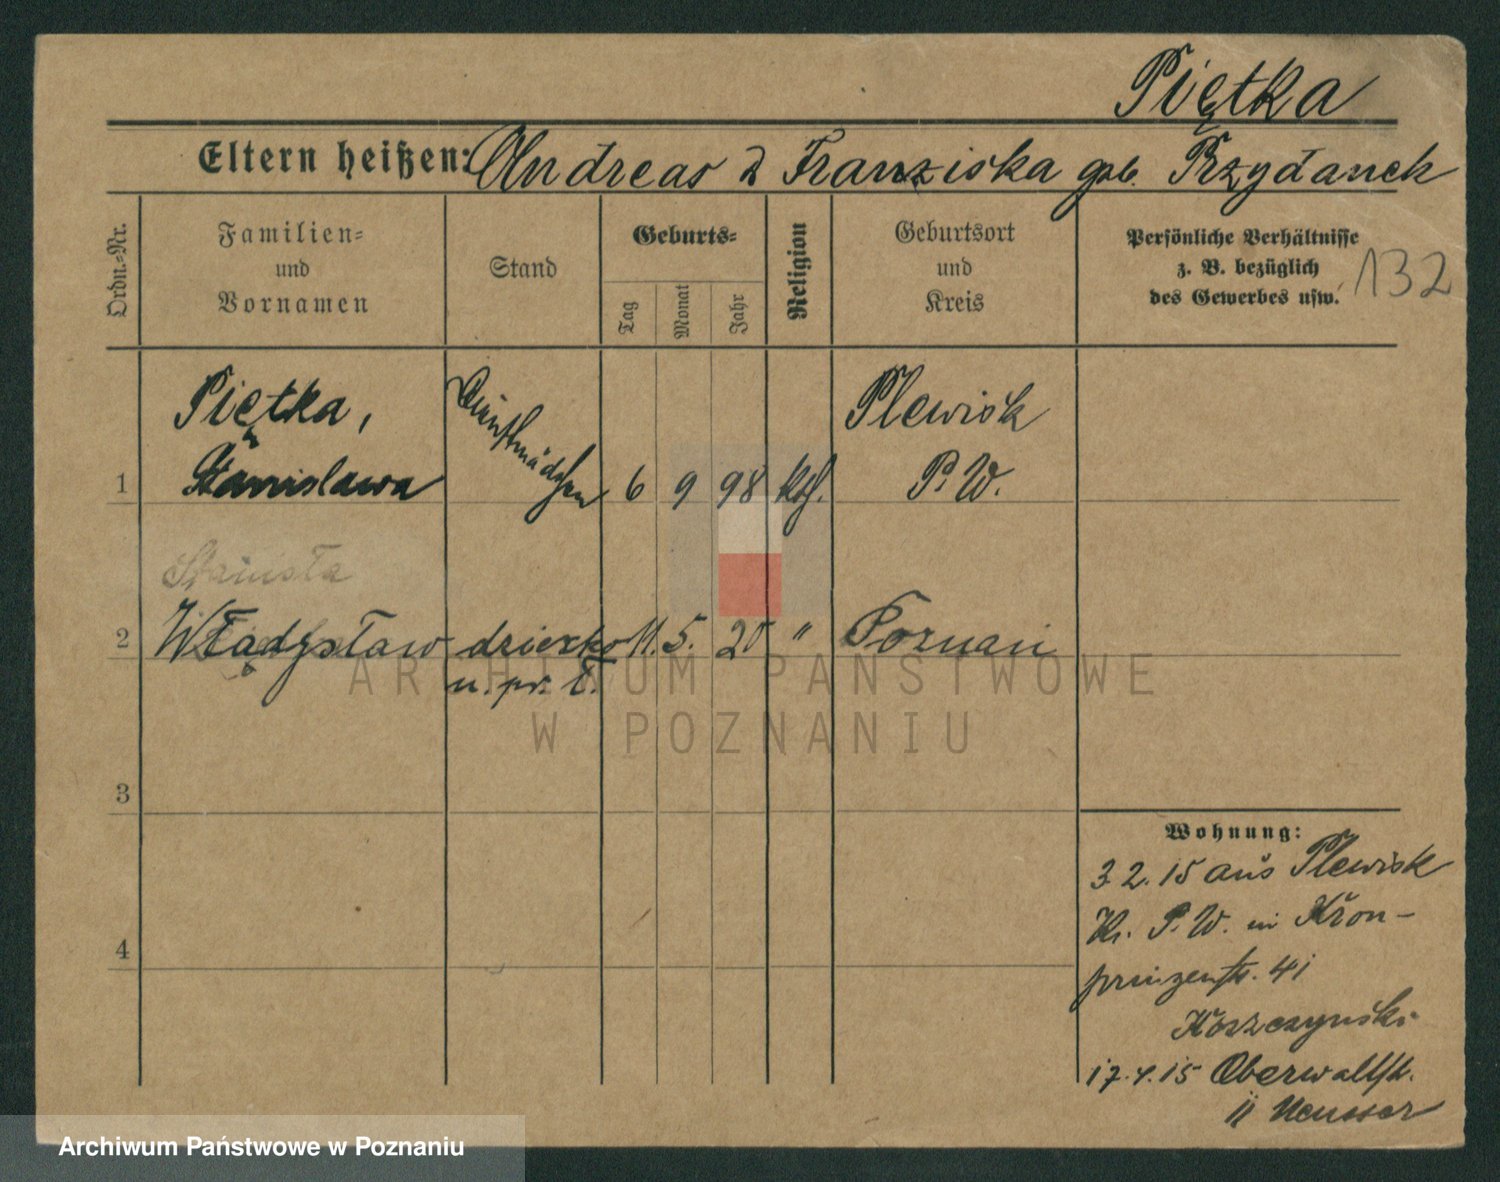 Piętka
Eltern heißen: Andreas & Franziska geb. Przydanek
Ordn.-Nr.
Familien-
und
Vornamen
Stand
Geburts-
Tag
Monat
Jahr
Religion
Geburtsort
und
Kreis
Persönliche Verhältnisse
z. B. bezüglich
des Gewerbes usw.
132
Piętka,
Dienstmädchen
Plewisk
1 Stanisława 6 9 98 kth. P. W.
Stanisła
2 Władysław dziecko 11. 5. 20 " Poznań
n. pr. ł.
3
4
Wohnung:
3 2. 15 aus Plewisk
Kr. P. W. in Kron-
prinzenstr. 41
Koszczynski
17.4.15 Oberwallstr.
11 Neusser
ARCHIWUM PAŃSTWOWE
W POZNANIU
Archiwum Państwowe w Poznaniu